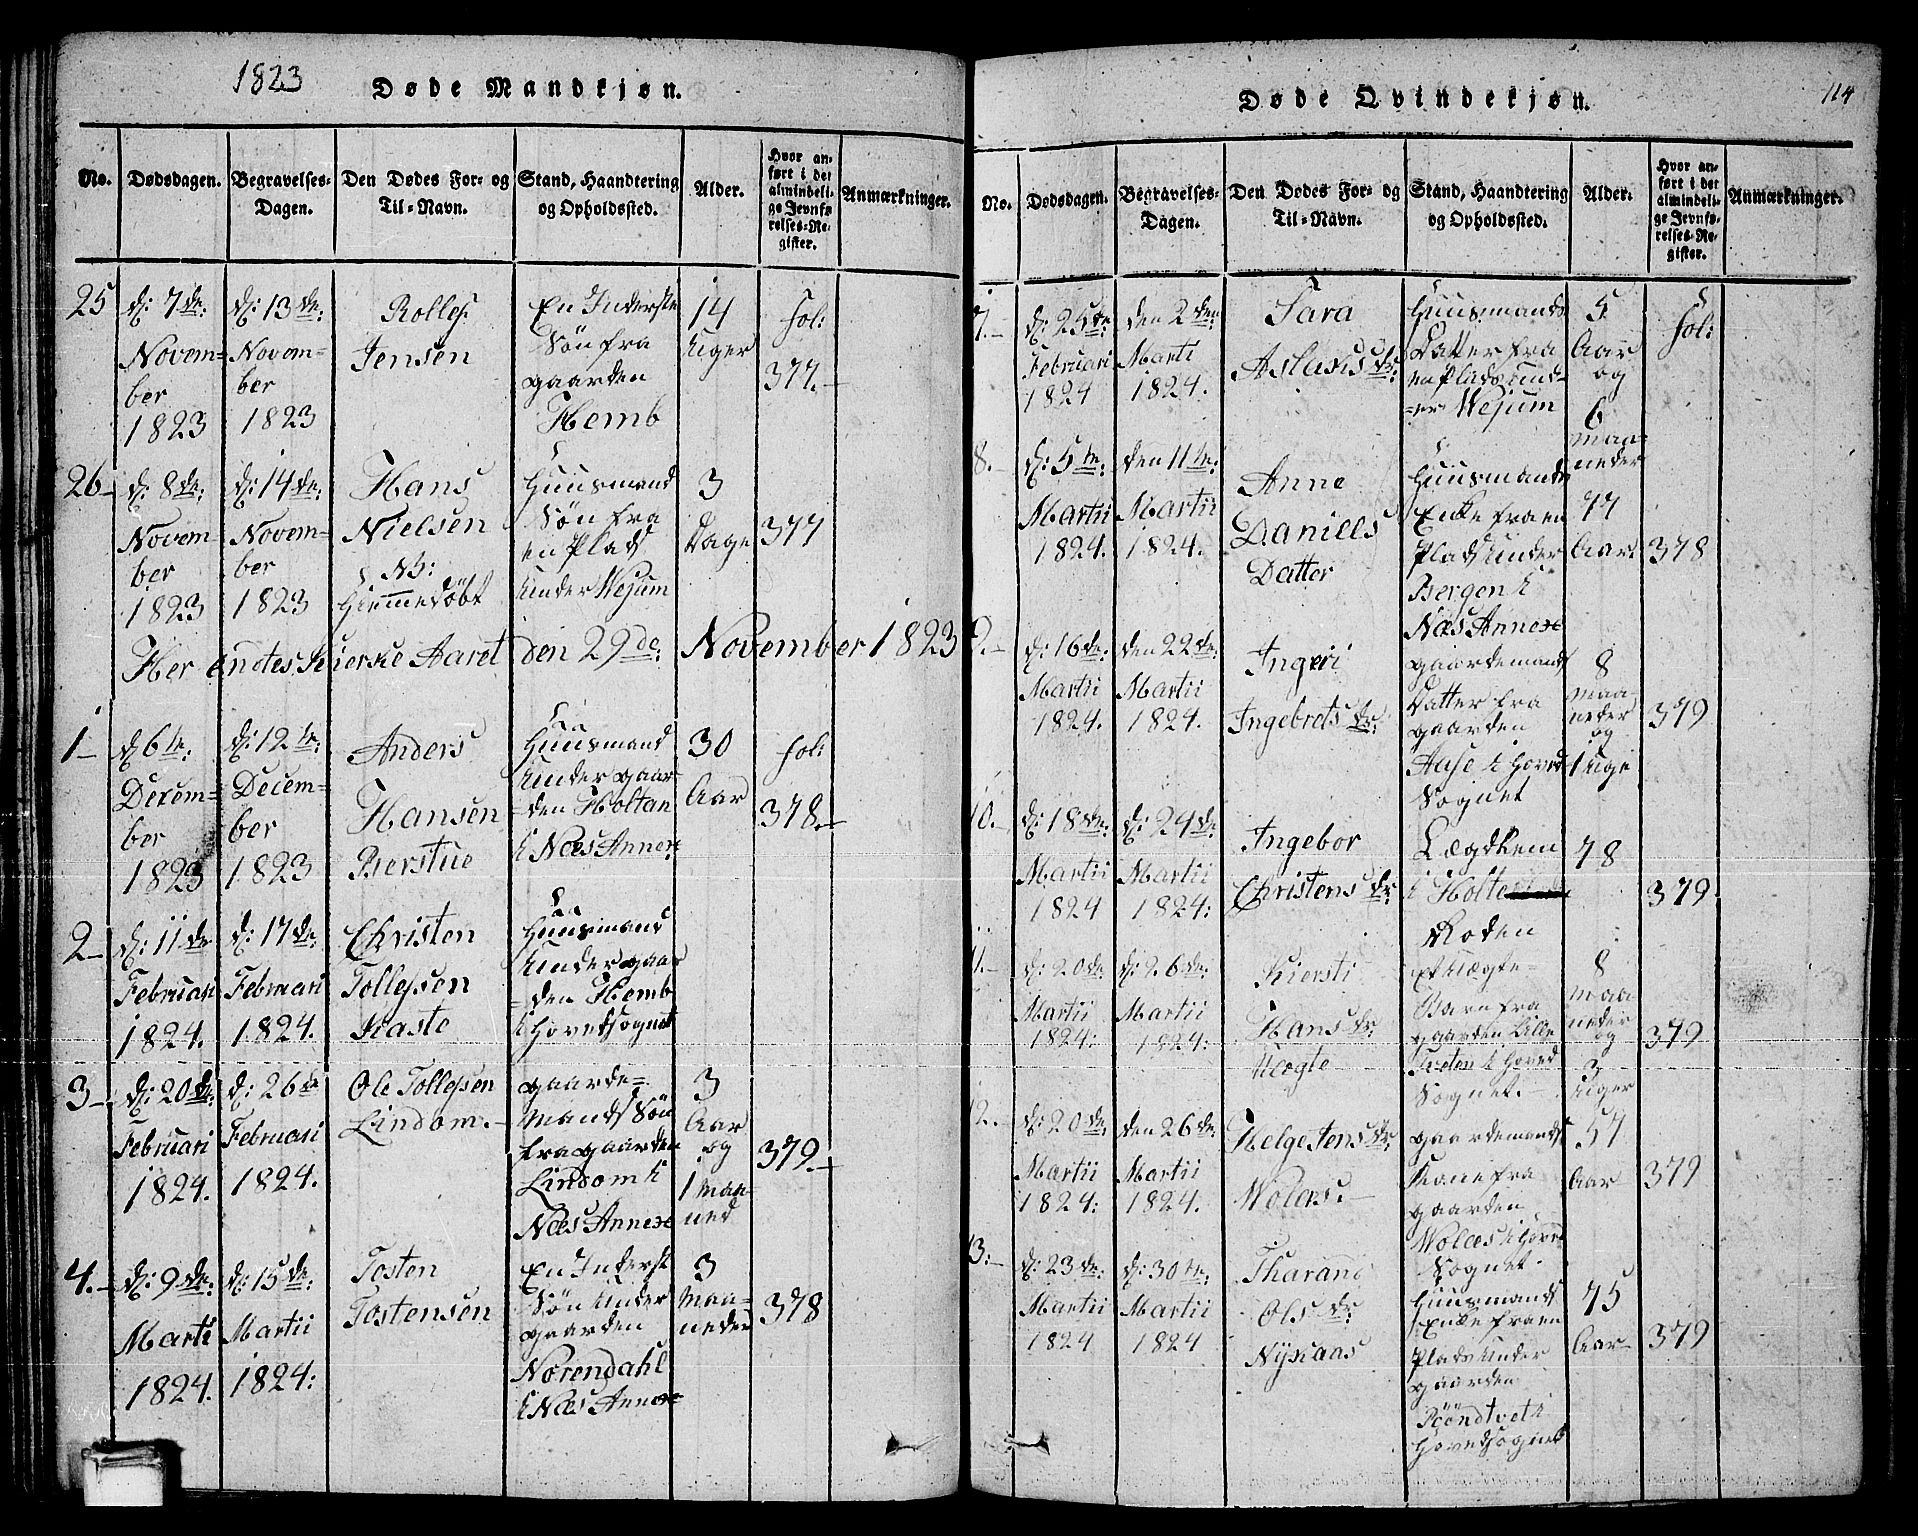 1823
Døde Mandkjøn.
No.
Dødsdagen.
Begravelses-
Dagen.
Den Dødes For- og
Til-Navn.
Stand, Haandtering
og Opholdssted.
Alder.
Hvor an-
ført i det
almindeli-
ge Jevnfø-
relses-Re-
gister.
Anmærkninger.
25
d: 7de:
Novem-
ber
1823
d: 13de:
Novem-
ber
1823
Rollef
Jensen
En Inderste
Søn fra
gaarden
Hemb
14
Uger
fol:
377.-
26-
d: 8de:
Novem-
ber
1823
d: 14de:
Novem-
ber
1823
Hans
Nielsen
NB:
Hiemmedøbt
Huusmand
Søn fra
en Plads
under Wejum
3
Dage
377
Her endtes Kierke Aaret den 29de: November 1823
1-
d: 6te:
Decem-
ber
1823
d: 12te:
Decem-
ber
1823
Anders
Hansen
Berstue
Huusmand
under gaar-
den Holtan
i Næs Annexe
30
Aar
fol:
378.-
2-
d: 11de
Februari
1824.
d: 17de:
Februari
1824.
Christen
Tollefsen
Kaste
Huusmand
under gaar-
den Hemb
i Hovedsognet
3-
d: 20de:
Februari
1824.
d: 26de
Februari
1824.
Ole Tollefsen
Lindom.-
gaarde-
mands Søn
fra gaarden
Lindom i
Næs Annexe
3
Aar
og
1 Maa-
ned
379.-
4.-
d: 9de:
Marti
1824.
d: 15de:
Martii
1824:
Tosten
Tostensen
En Inderst
Søn under
gaarden
Norendahl
i Næs Annexe
3
Maa-
neder
378
114
Døde Qvindekjøn.
No.
Dødsdagen.
Begravelses-
Dagen.
Den Dødes For- og
Til-Navn.
Stand, Haandtering
og Opholdssted.
Alder.
Hvor an-
ført i det
almindeli-
ge Jevnfø-
relses-Re-
gister.
Anmærkninger.
7.-
d: 25de:
Februari
1824
den 2den
Marti
1824.
Sara
Aslaksdr:
Huusmands
Datter fra
en Plads und-
er Wejum
5
Aar
og
6
maa-
neder
fol:
8.-
d: 5te:
Martii
1824.
den 11te:
Martii
1824.
Anne
Daniells
Datter
Huusmands
Enke fra en
Plads under
Bergen i
Næs Annexe
77
Aar
378
9.-
d: 16de:
Martii
1824.
den 22de:
Martii
1824.
Ingeri
Ingebrets dr:
gaardemands
Datter fra
gaarden
Aase i Hoved
Sognet
8
maa-
neder
og
1 Uge
379
10.-
d: 18de:
Martii
1824
d: 24de
Martii
1824:
Ingebor
Christens dr.
Lægdlem
i Holte
Roden
78
379.
11.-
d: 20de:
Martii
1824:
d: 26de:
Martii
1824:
Kiersti
Hans dr
Uægte
et Uægte-
Barn fra
gaarden Lille
Treten i Hoved
Sognet.-
8
maa-
neder
og
3
uger
379
12.-
d: 20de
Martii
1824:
den 26de:
Martii
1824.
Helge Jens dr.
Wolens.-
gaardemands
Kone fra
gaarden
Wolæs i Hoved
Sognet.
57
Aar
379
13:-
d: 23de:
Martii
1824
d: 30te:
Martii
1824
Tharand
Ols dr:
Nysaas
Huusmands
Enke fra en
Plads under
gaarden
Pøøndtvet i
Hovedsognet
75
Aar-
379